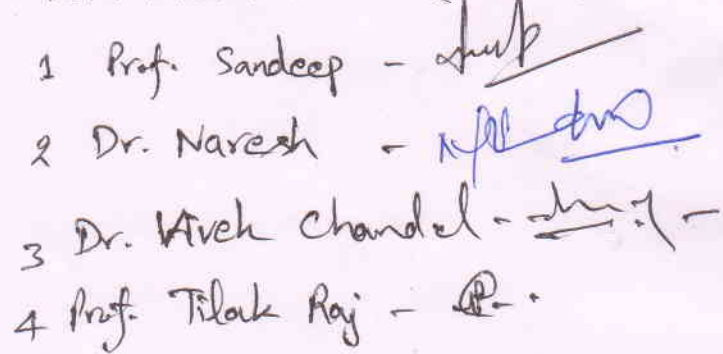 1 Prof. Sandeep -
2 Dr. Naresh -
3 Dr. Vivek Chandel -
4 Prof. Tilak Raj -